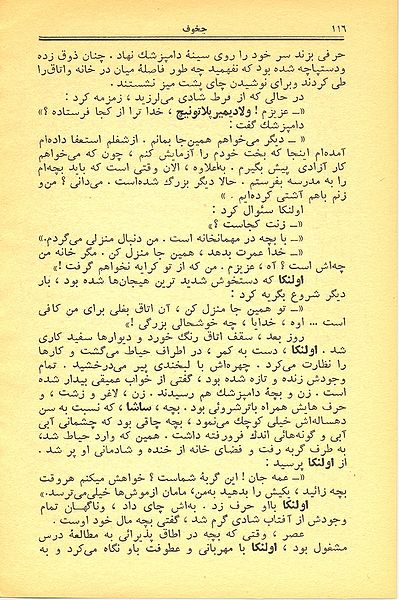 ۱۱۶ چخوف
حرفی بزند سر خود را روی سینهٔ دامپزشك نهاد. چنان ذوق زده
ودستپاچه شده بود که نفهمید چه طور فاصلهٔ میان در خانه واتاق‌را
طی کردند وبرای نوشیدن چای پشت میز نشستند.
در حالی که از فرط شادی می‌لرزید، زمزمه کرد:
«ــ عزیزم! ولادیمیرپلاتونیچ، خدا ترا از کجا فرستاده؟»
دامپزشك گفت:
«ــ دیگر می‌خواهم همین‌جا بمانم. ازشغلم استعفا داده‌ام
آمده‌ام اینجا که بخت خودم را آزمایش کنم، چون که می‌خواهم
کار آزادی پیش بگیرم. به‌علاوه، الان وقتی است که باید بچه‌ام
را به مدرسه بفرستم. حالا دیگر بزرگ شده‌است. می‌دانی؟ من‌و
زنم باهم آشتی کرده‌ایم.»
اولنکا سئوال کرد:
«ــ زنت کجاست؟»
«ــ با بچه در مهمانخانه است. من دنبال منزلی می‌گردم.»
«ــ خدا عمرت بدهد، همین جا منزل کن. مگر خانه من
چه‌اش است؟ آه، عزیزم. من که از تو کرایه نخواهم گرفت!»
اولنکا که دستخوش شدید ترین هیجان‌ها شده بود، بار
دیگر شروع بگریه کرد:
«ــ تو همین جا منزل کن، آن اتاق بغلی برای من کافی
است ... اوه، خدایا، چه خوشحالی بزرگی!»
روز بعد، سقف اتاق رنگ خورد و دیوارها سفید کاری
شد. اولنکا، دست به کمر، در اطراف حیاط می‌گشت و کارها
را نظارت می‌کرد. چهره‌اش با لبخندی پیر می‌درخشید. تمام
وجودش زنده و تازه شده بود، گفتی از خواب عمیقی بیدار شده
است. زن و بچهٔ دامپزشك هم رسیدند. زن، لاغر و زشت، و
حرف هایش همراه باترشروئی بود. بچه، ساشا، که نسبت به سن
دهساله‌اش خیلی کوچك می‌نمود، بچه چاقی بود که چشمانی آبی
آبی و گونه‌هائی اندك فرورفته داشت. همین که وارد حیاط شد،
به طرف گربه رفت و فضای خانه از خنده و شادمانی او پر شد.
از اولنکا پرسید:
«ــ عمه جان! این گربهٔ شماست؟ خواهش میکنم هروقت
بچه زائید، یکیش را بدهید به‌من، مامان ازموش‌ها خیلی‌می‌ترسد.»
اولنکا بااو حرف زد. به‌اش چای داد، وناگهان تمام
وجودش از آفتاب شادی گرم شد، گفتی بچه مال خود اوست.
عصر، وقتی که بچه در اطاق پذیرائی به مطالعهٔ درس
مشغول بود، اولنکا با مهربانی و عطوفت باو نگاه می‌کرد و به